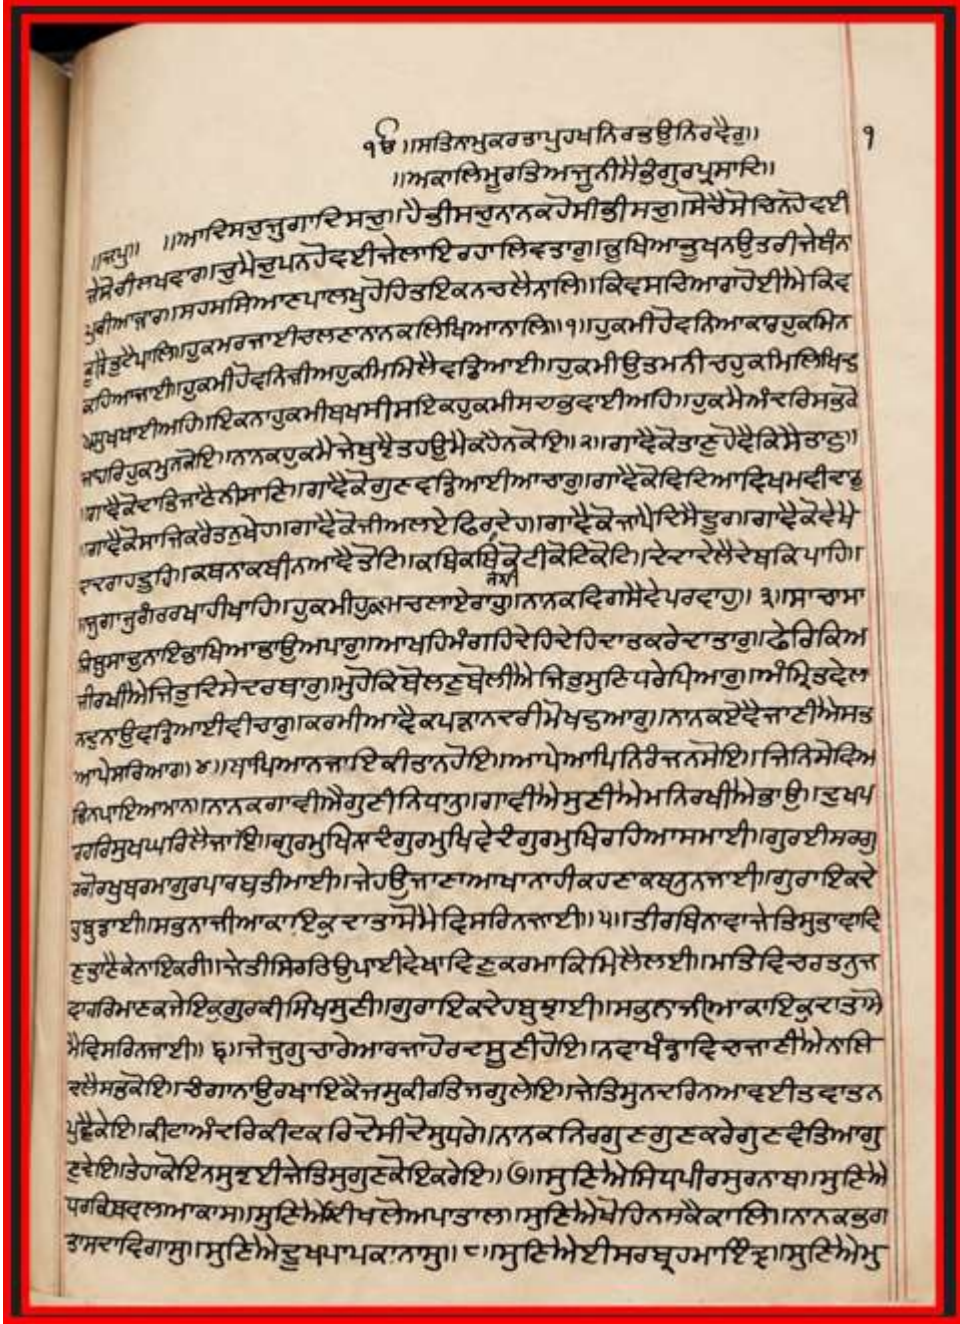 ੧ੴ ॥ਸਤਿਨਾਮੁਕਰਤਾਪੁਰਖਨਿਰਭਉਨਿਰਵੈਰੁ॥ ੧
॥ਅਕਾਲਮੂਰਤਿਅਜੂਨੀਸੈਭੰਗੁਰਪ੍ਰਸਾਦਿ॥
॥ਜਪੁ॥ ॥ਆਦਿਸਚੁਜੁਗਾਦਿਸਚੁ॥ਹੈਭੀਸਚੁਨਾਨਕਹੋਸੀਭੀਸਚੁ॥ਸੋਚੈਸੋਚਿਨਹੋਵਈ
ਜੇਸੋਚੀਲਖਵਾਰ॥ਚੁਪੈਚੁਪਨਹੋਵਈਜੇਲਾਇਰਹਾਲਿਵਤਾਰ॥ਭੁਖਿਆਭੁਖਨਉਤਰੀਜੇਬੰਨਾ
ਪੁਰੀਆਭਾਰ॥ਸਹਸਸਿਆਣਪਾਲਖੁਹੋਹਿਤਇਕਨਚਲੈਨਾਲਿ॥ਕਿਵਸਚਿਆਰਾਹੋਈਐਕਿਵ
ਕੂੜੈਤੁਟੈਪਾਲਿ॥ਹੁਕਮਰਜਾਈਚਲਣਾਨਾਨਕਲਿਖਿਆਨਾਲਿ॥੧॥ਹੁਕਮੀਹੋਵਨਿਆਕਾਰਹੁਕਮਿਨ
ਕਹਿਆਜਾਈ॥ਹੁਕਮੀਹੋਵਨਿਜੀਅਹੁਕਮਿਮਿਲੈਵਡਿਆਈ॥ਹੁਕਮੀਉਤਮਨੀਚਹੁਕਮਿਲਿਖਿਦੁ
ਖਸੁਖਪਾਈਅਹਿ॥ਇਕਨਾਹੁਕਮੀਬਖਸੀਸਇਕਹੁਕਮੀਸਦਾਭਵਾਈਅਹਿ॥ਹੁਕਮੈਅੰਦਰਿਸਭੁਕੋ
ਬਾਹਰਿਹੁਕਮੁਨਕੋਇ॥ਨਾਨਕਹੁਕਮੈਜੇਬੁਝੈਤਹਉਮੈਕਹੈਨਕੋਇ॥੨॥ਗਾਵੈਕੋਤਾਣੁਹੋਵੈਕਿਸੈਤਾਣੁ॥
॥ਗਾਵੈਕੋਦਾਤਿਜਾਣੈਨੀਸਾਣਿ॥ਗਾਵੈਕੋਗੁਣਵਡਿਆਈਆਚਾਰੁ॥ਗਾਵੈਕੋਵਿਦਿਆਵਿਖਮਵੀਚਾਰੁ
॥ਗਾਵੈਕੋਸਾਜਿਕਰੈਤਨੁਖੇਹ॥ਗਾਵੈਕੋਜੀਅਲਏਫਿਰਿਦੇਹ॥ਗਾਵੈਕੋਜਾਪੈਦਿਸੈਦੂਰ॥ਗਾਵੈਕੋਵੇਖੈ
ਹਾਦਰਾਹਦੂਰਿ॥ਕਥਨਾਕਥੀਨਆਵੈਤੋਟਿ॥ਕਥਿਕਥਿਕੋਟੀਕੋਟਿਕੋਟਿ॥ਦੇਦਾਦੇਲੈਦੇਥਕਿਪਾਹਿ॥
ਜੁਗਾਜੁਗੰਤਰਖਾਹੀਖਾਹਿ॥ਹੁਕਮੀਹੁਕਮਚਲਾਏਰਾਹੁ॥ਨਾਨਕਵਿਗਸੈਵੇਪਰਵਾਹੁ॥੩॥ਸਾਚਾਸਾ
ਹਿਬੁਸਾਚੁਨਾਇਭਾਖਿਆਭਾਉਅਪਾਰੁ॥ਆਖਹਿਮੰਗਹਿਦੇਹਿਦੇਹਿਦਾਤਕਰੇਦਾਤਾਰੁ॥ਫੇਰਿਕਿਅ
ਗੈਰਖੀਐਜਿਤੁਦਿਸੇਦਰਬਾਰੁ॥ਮੁਹੋਕਿਬੋਲਣੁਬੋਲੀਐਜਿਤੁਸੁਣਿਧਰੇਪਿਆਰੁ॥ਅੰਮ੍ਰਿਤਵੇਲਾ
ਸਚੁਨਾਉਵਡਿਆਈਵੀਚਾਰੁ॥ਕਰਮੀਆਵੈਕਪੜਾਨਦਰੀਮੋਖਦੁਆਰੁ॥ਨਾਨਕਏਵੈਜਾਣੀਐਸਭ
ਆਪੇਸਚਿਆਰ॥੪॥ਥਾਪਿਆਨਜਾਇਕੀਤਾਨਹੋਇ॥ਆਪੇਆਪਿਨਿਰੰਜਨਸੋਇ॥ਜਿਨਿਸੇਵਿਅ
ਤਿਨਪਾਇਆਮਾਨ॥ਨਾਨਕਗਾਵੀਐਗੁਣੀਨਿਧਾਨੁ॥ਗਾਵੀਐਸੁਣੀਐਮਨਿਰਖੀਐਭਾਉ॥ਦੁਖਪ
ਰਹਰਿਸੁਖਘਰਿਲੈਜਾਇ॥ਗੁਰਮੁਖਿਨਾਦੰਗੁਰਮੁਖਿਵੇਦੰਗੁਰਮੁਖਿਰਹਿਆਸਮਾਈ॥ਗੁਰਈਸਰੁਗੁ
ਰਗੋਰਖੁਬਰਮਾਗੁਰਪਾਰਬਤੀਮਾਈ॥ਜੇਹਉਜਾਣਾਆਖਾਨਾਹੀਕਹਣਾਕਥਨੁਨਜਾਈ॥ਗੁਰਾਇਕਦੇ
ਹੁਬੁਝਾਈ॥ਸਭਨਾਜੀਆਕਾਇਕੁਦਾਤਾਸੋਮੈਵਿਸਰਿਨਜਾਈ॥੫॥ਤੀਰਥਿਨਾਵਾਜੇਤਿਸੁਭਾਵਾਵਿ
ਣੁਭਾਣੈਕੇਨਾਇਕਰੀ॥ਜੇਤੀਸਿਰਠਿਉਪਾਈਵੇਖਾਵਿਣੁਕਰਮਾਕਿਮਿਲੈਲਈ॥ਮਤਿਵਿਚਰਤਨੁਜ
ਵਾਹਰਿਮਾਣਕਜੇਇਕੁਗੁਰਕੀਸਿਖਸੁਣੀ॥ਗੁਰਾਇਕਦੇਹਬੁਝਾਈ॥ਸਭਨਾਜੀਆਕਾਇਕੁਦਾਤਾਸੋ
ਮੈਵਿਸਰਿਨਜਾਈ॥੬॥ਜੇਜੁਗੁਚਾਰੇਆਰਜਾਹੋਰਦਸੂਣੀਹੋਇ॥ਨਵਾਖੰਡਾਵਿਚਜਾਣੀਐਨਾਲਿ
ਚਲੈਸਭਕੋਇ॥ਚੰਗਾਨਾਉਰਖਾਇਕੈਜਸੁਕੀਰਤਿਜਗੁਲੇਇ॥ਜੇਤਿਸੁਨਦਰਿਨਆਵਈਤਵਾਤਨ
ਪੁਛੈਕੇਇ॥ਕੀਟਾਅੰਦਰਿਕੀਟਕਰਿਦੋਸੀਦੋਸੁਧਰੇ॥ਨਾਨਕਨਿਰਗੁਣਗੁਣਕਰੇਗੁਣਵੰਤਿਆਗੁ
ਣਦੇਇ॥ਤੇਹਾਕੋਇਨਸੁਝਈਜੇਤਿਸੁਗੁਣਕੋਇਕਰੇਇ॥੭॥ਸੁਣਿਐਸਿਧਪੀਰਸੁਰਨਾਥ॥ਸੁਣਿਐ
ਧਰਤਿਧਵਲਆਕਾਸ॥ਸੁਣਿਐਦੀਪਲੋਅਪਾਤਾਲ॥ਸੁਣਿਐਪੋਹਿਨਸਕੈਕਾਲਿ॥ਨਾਨਕਭਗ
ਤਾਸਦਾਵਿਗਾਸੁ॥ਸੁਣਿਐਦੂਖਪਾਪਕਾਨਾਸੁ॥੮॥ਸੁਣਿਐਈਸਰਬ੍ਰਹਮਾਇੰਦ੍ਰ॥ਸੁਣਿਐਮੁ